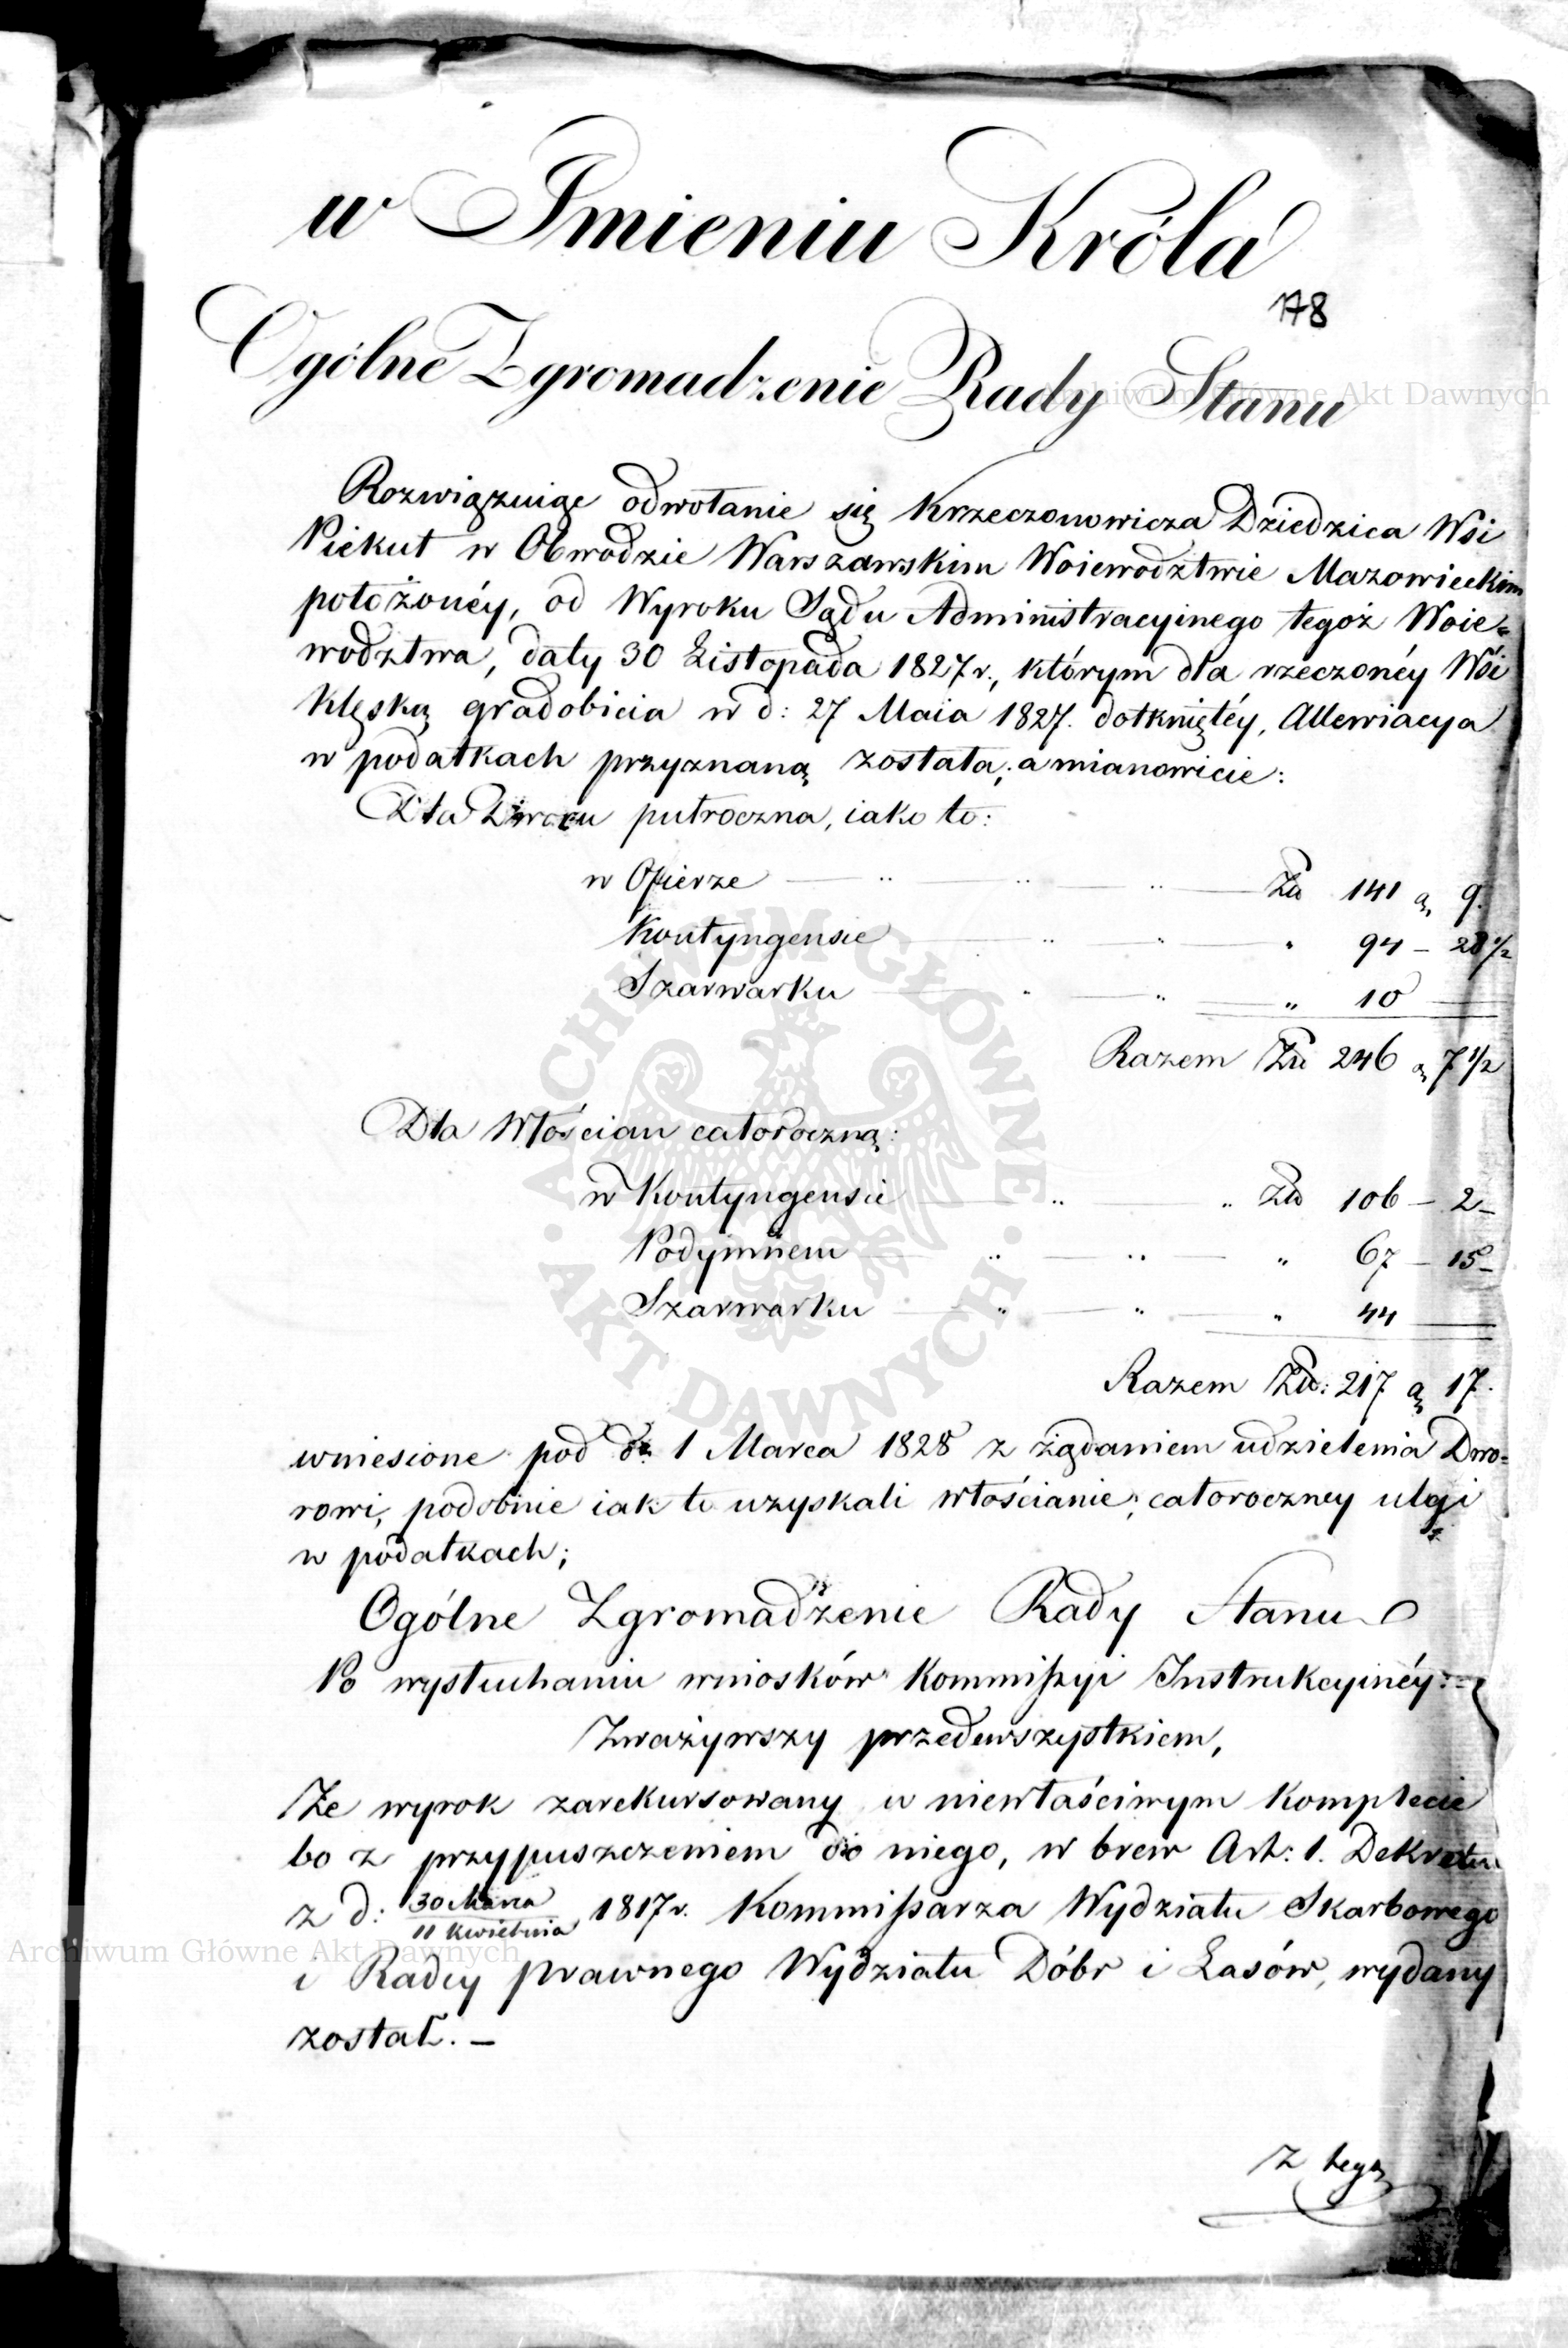 w Imieniu Króla
178
Ogólne Zgromadzenie Rady Stanu
Archiwum Główne Akt Dawnych
Rozwiązuiąc odwołanie się Krzeczonowicza Dziedzica Wsi
Piekut w Obwodzie Warszawskim Woiewodztwie Mazowieckim
położonéy, od Wyroku Sądu Administracyinego tegoż Woie=
wodztwa, daty 30 Listopada 1827 r., którym dla rzeczonéy Wsi
klęską gradobicia w d: 27 Maia 1827. dotkniętéy, Allewiacya
w podatkach przyznaną została; a mianowicie:
Dla Dworu pułroczna, iako to:
w Ofierze Zł 141 g 9.
Kontyngensie " 94 – 28 1/2
Szarwarku " 10
Razem Zł 246 g 7 1/2
Dla Włościan całoroczną:
w Kontyngensie Zł 106 – 2 –
Podymnem " 67 – 15 –
Szarwarku " 44
Razem Zł: 217 g 17.
wniesione pod d: 1 Marca 1828 z żądaniem udzielenia Dwo=
rowi, podobnie iak to uzyskali włościanie; całoroczney ulgi
w podatkach;
Ogólne Zgromadzenie Rady Stanu
Po wysłuchaniu wniosków Kommißyi Instrukcyinéy:
Zważywszy przedewszystkiem,
Że wyrok zarekursowany w niewłaściwym komplecie
bo z przypuszczeniem do niego, w brew Art: 1. Dekretu
z d: 30 Marca / 11 Kwietnia 1817 r. Kommißarza Wydziału Skarbowego
Archiwum Główne Akt Dawnych
i Radcy prawnego Wydziału Dóbr i Lasów, wydany
został. –
Z tego
ARCHIWUM GŁÓWNE · AKT DAWNYCH ·